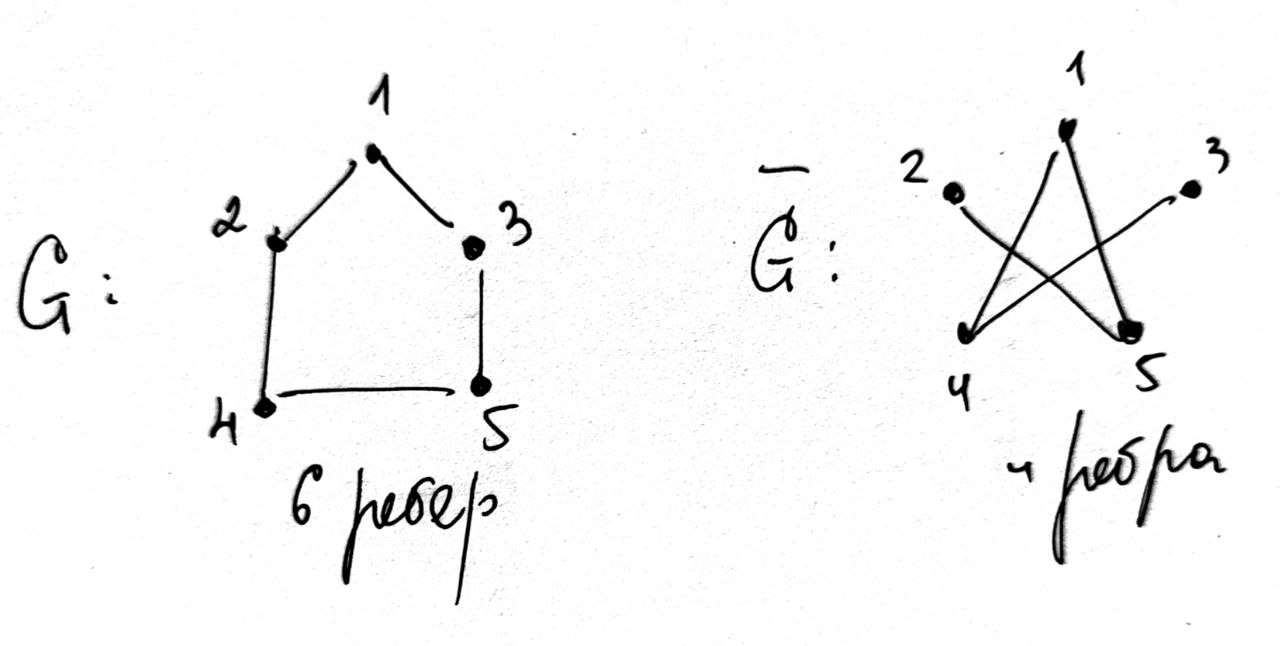 G:
1
2
3
4
5
6 ребер
G̅:
1
2
3
4
5
4 ребра